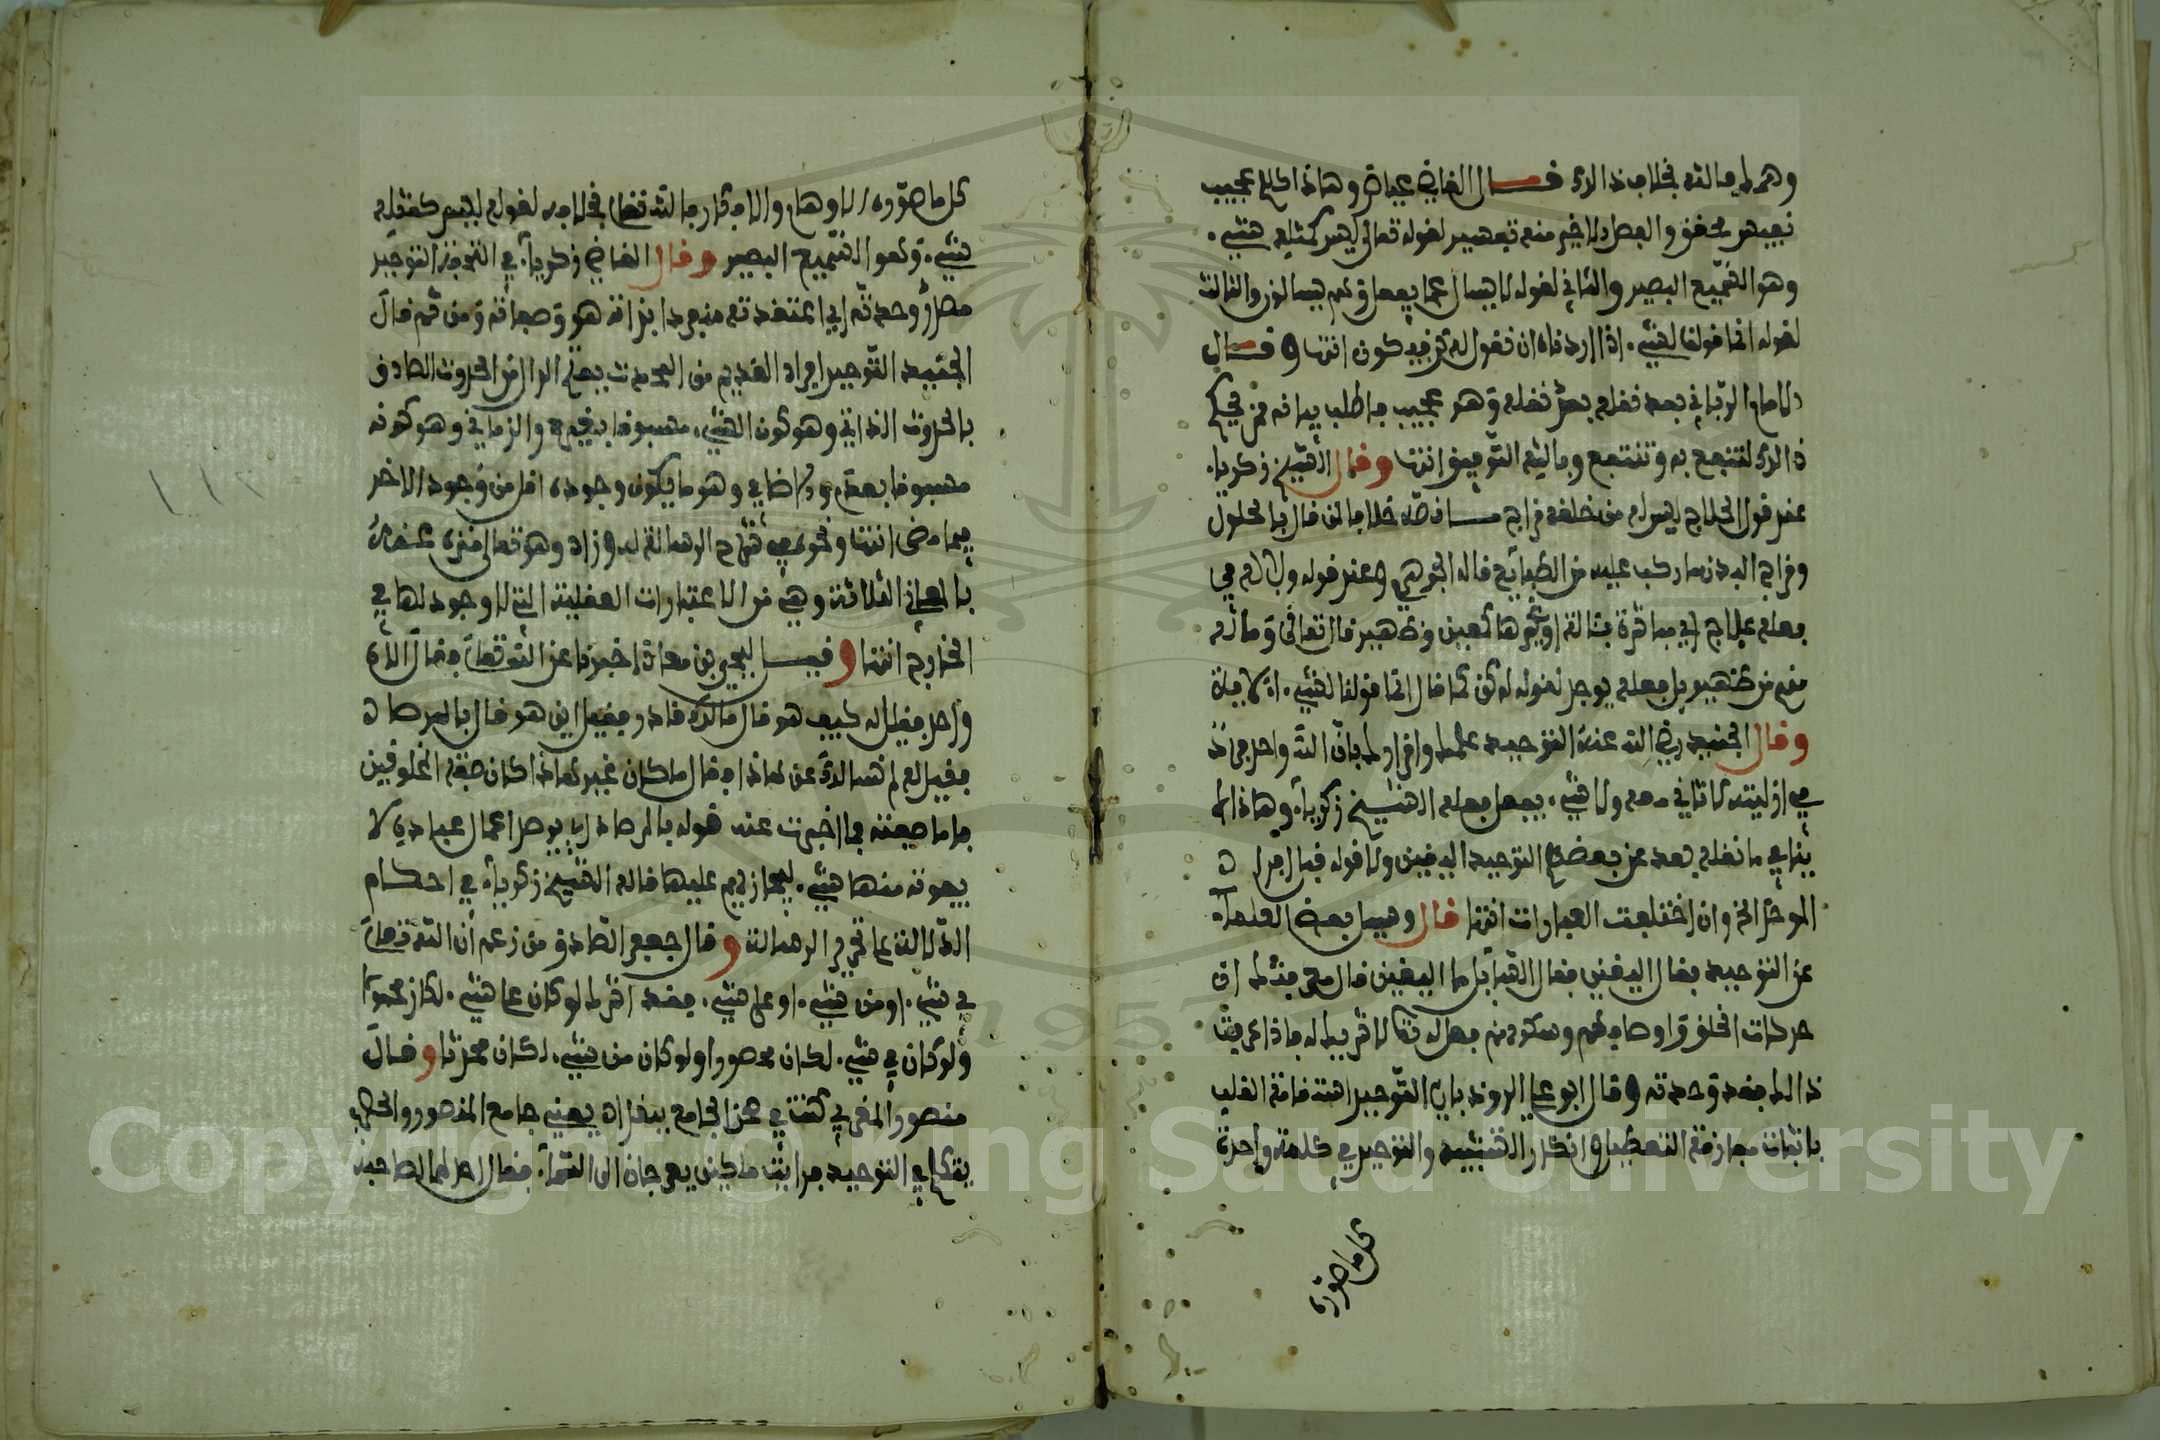 وهمك فالله بخلاف ذالك قال القاضي عياض وهاذا كلام عجيب
نفيس محقق والفصل الاخير منه تفسير لقوله تعالى ليس كمثله شيء
وهو السميع البصير والثاني لقوله لا يسال عما يفعل وهم يسالون والثالث
لقوله انما قولنا لشيء اذا اردناه ان نقول له كن فيكون انتها وقال
الامام الرباني بعد نقله بعض نقله وهو عجيب فاطلب بيانه من
ذالك لتنتفع به وتنتفع وبالله التوفيق انتها وقال الشيخ زكرياء
عند قول الحلاج ليس له من خلقه مزاج ما نصه خلافا لمن قال بالحلول
ومزاج البدن ما ركب عليه من الطبائع قاله الجوهري وعند قوله ولا له في
فعله علاج اي مباشرة بئالة او غيرها كمعين وظهير قال تعالى وما له
منهم من ظهير بل فعله يوجد بقوله له كن كما قال انما قولنا لشيء الاية
وقال الجنيد رضي الله عنه التوحيد علمك واقرارك بان الله واحد فرد
في ازليته لا ثاني معه ولا شيء يفعل فعله الشيخ زكرياء وهاذا لا
ينافي ما نقله بعد عن بعضهم التوحيد اليقين ولا قوله قبل افراد
الموحد الخ وان اختلفت العبارات انتها قال وسيل بعض العلماء
عن التوحيد فقال اليقين فقال السائل ما اليقين قال معرفتك ان
حركات الخلق واوصافهم وسكونهم فعل الله تعالى لا شريك له فاذا عرفت
ذالك فقد وحدته وقال ابو علي الروذباري التوحيد استقامة القلب
باثبات مفارقة التعطيل وانكار التشبيه والتوحيد في كلمة واحدة
كل ما صوره
كل ما صوره الاوهام والافكار فالله تعالى بخلافه لقوله ليس كمثله
شيء وهو السميع البصير وقال القاضي زكرياء في التحفة التوحيد
مصدر وحدته اي اعتقدته منفردا بذاته وصفاته ومن ثم قال
الجنيد التوحيد افراد القديم من المحدث بفتح الدال من الحدوث الصادق
بالحدوث الذاتي وهو كون الشيء مسبوقا بغيره والزماني وهو كونه
مسبوقا بعدم والاضافي وهو ما يكون وجوده اقل من وجود الاخر
فيما مضى انتها ونحوه في شرح الرسالة له وزاد وهو تعالى منزه عنه
بالمعاني الثلاثة وهي من الاعتبارات العقلية التي لا وجود لها في
الخارج انتها وقيل ليحيى بن معاذ اخبرنا عن الله تعالى فقال الاه
واحد فقيل له كيف هو قال مالك قادر فقيل اين هو قال بالمرصاد
فقيل له لم نسالك عن هاذا فقال ما كان غير هاذا كان صفة المخلوقين
فاما صفته فما اخبرت عنه قوله بالمرصاد اي يرصد اعمال عبادي لا
يفوته منها شيء ليجازيهم عليها قاله الشيخ زكرياء في احكام
الدلالة على تحرير الرسالة وقال جعفر الصادق من زعم ان الله تعالى
في شيء او من شيء او على شيء فقد اشرك لو كان على شيء لكان محمولا
ولو كان في شيء لكان محصورا ولو كان من شيء لكان محدثا وقال
منصور المغربي كنت في صحن الجامع ببغداد يعني جامع المنصور والحصري
يتكلم في التوحيد فرايت ملكين يعرجان الى السماء فقال احدهما لصاحبه